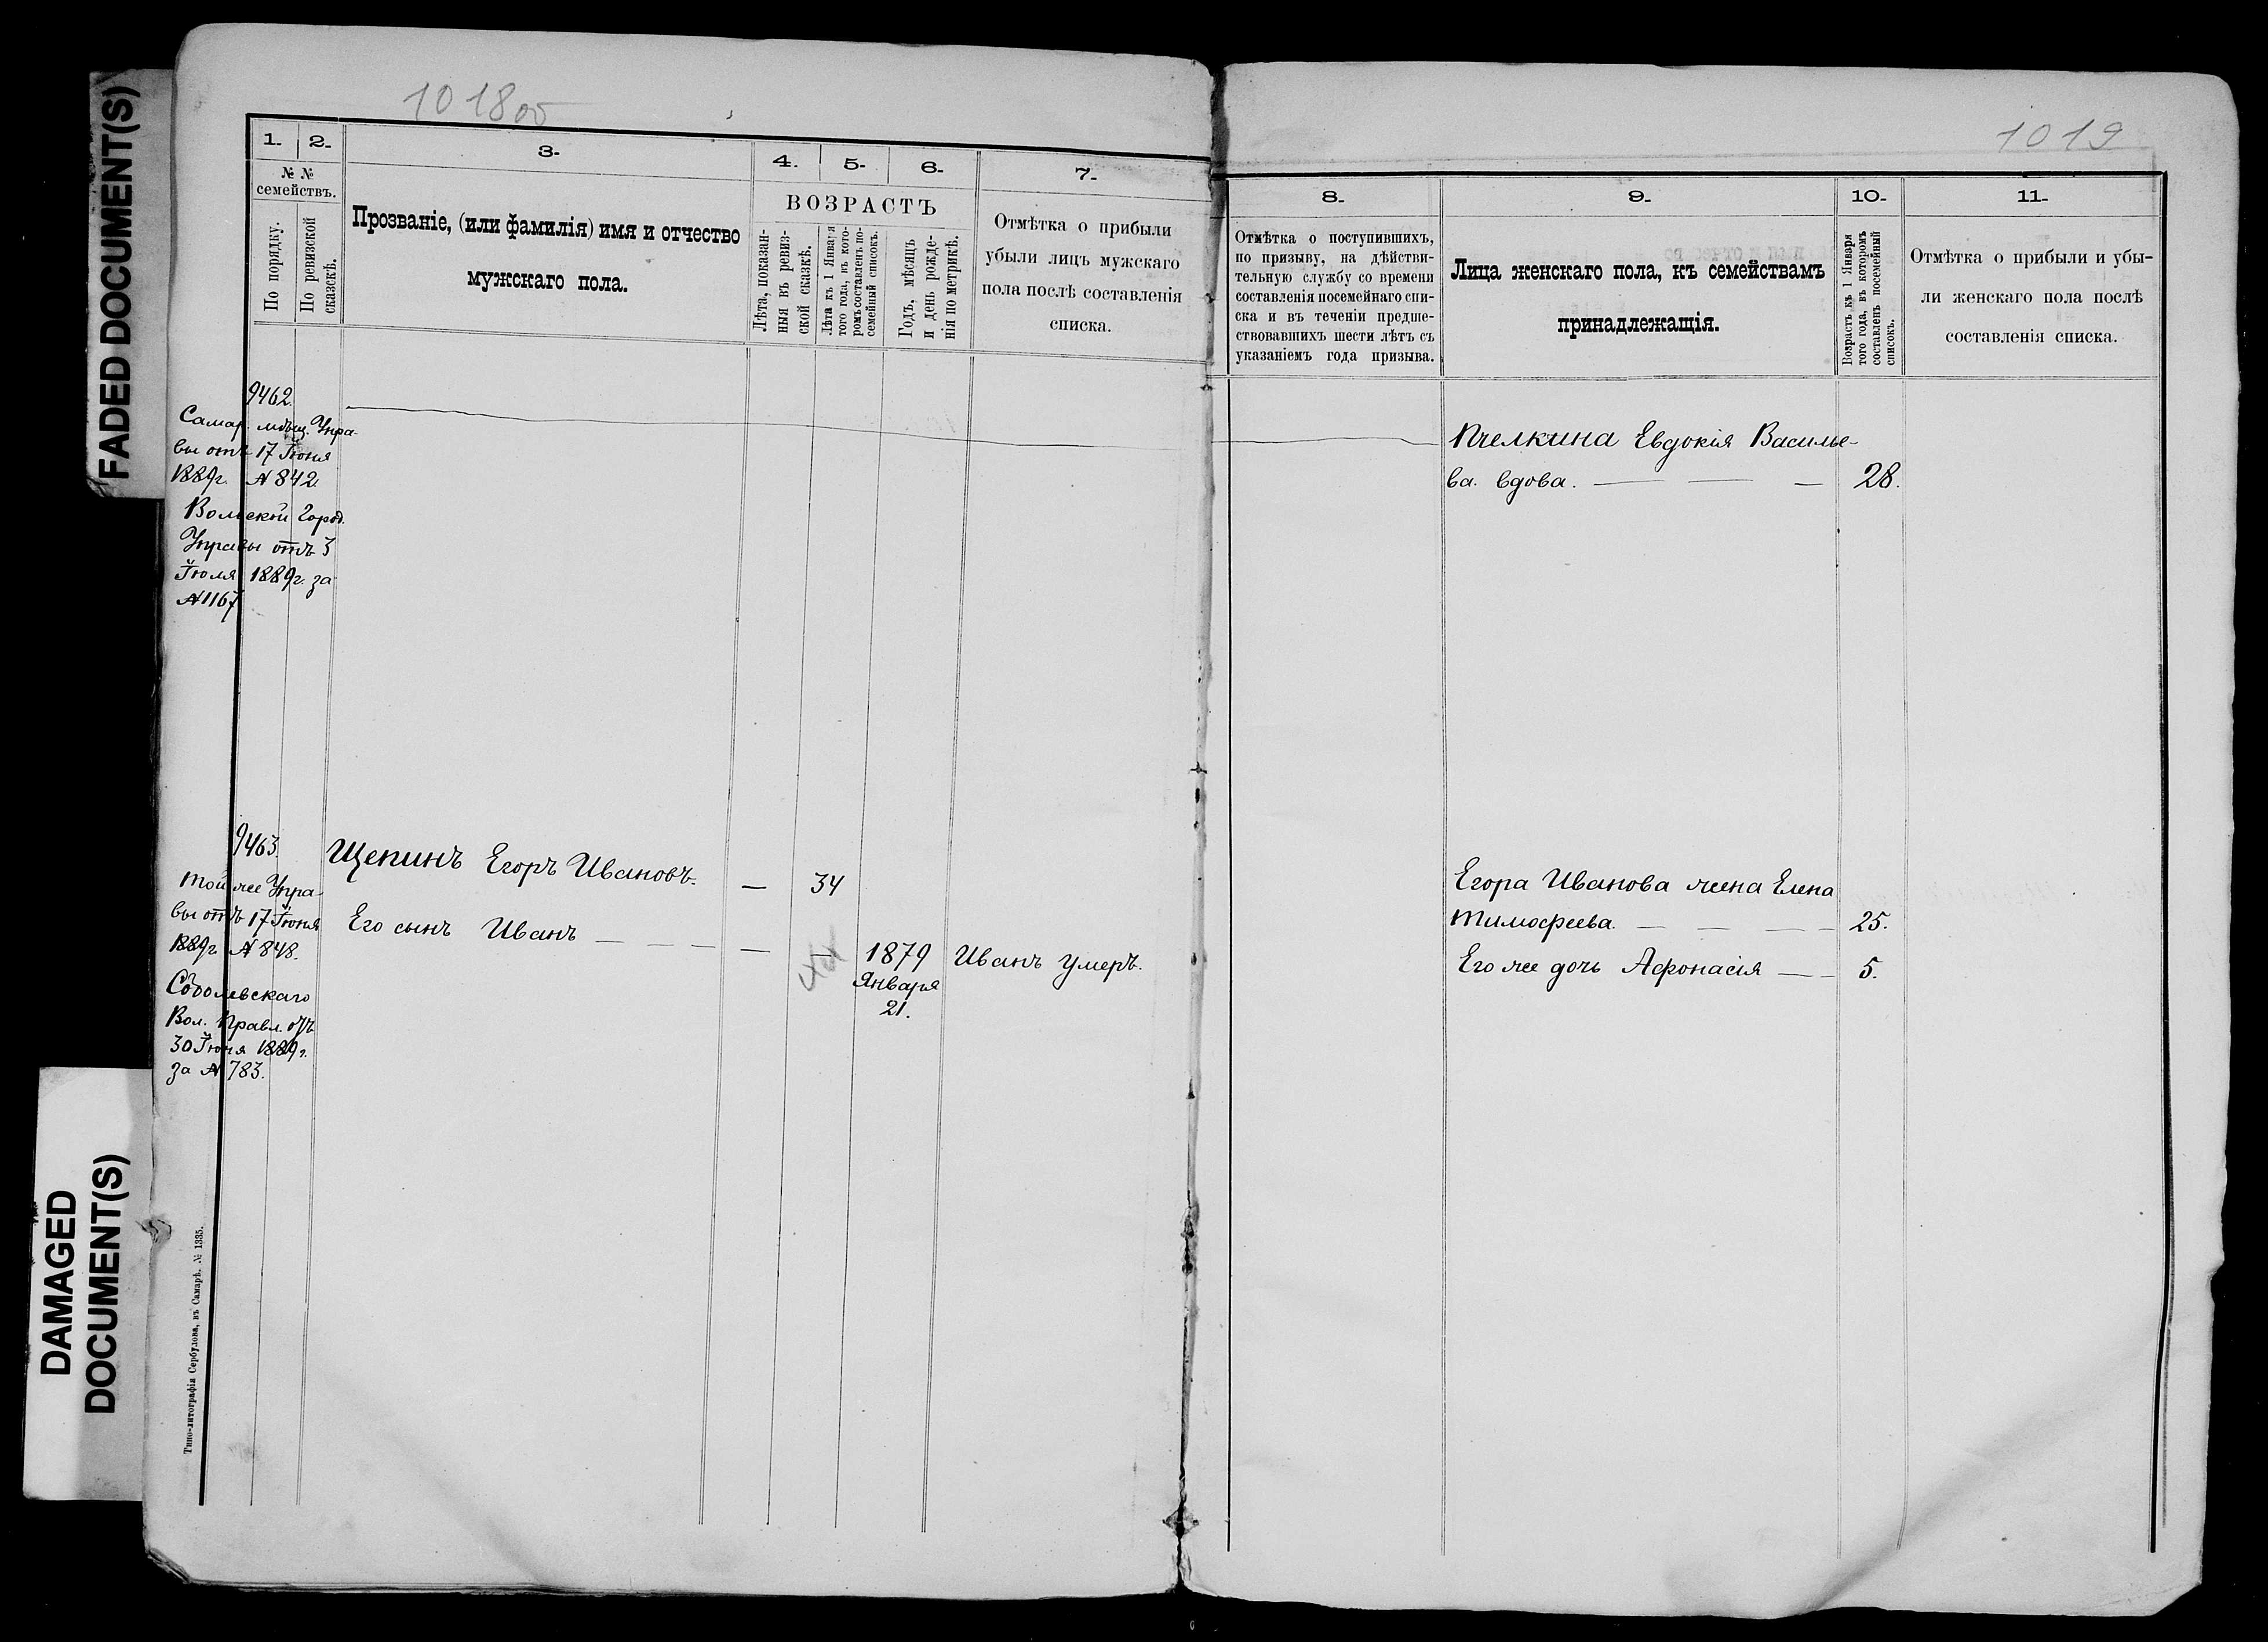 FADED DOCUMENT(S)
DAMAGED
DOCUMENT(S)
101800
1.
2.
3.
4.
5.
6.
7.
№ №
семействъ.
По порядку.
По ревизской
сказскѣ.
Прозваніе, (или фамилія) имя и отчество
мужскаго пола.
ВОЗРАСТЪ
Лѣта, показан-
ныя въ ревиз-
ской сказкѣ.
Лѣта къ 1 Января
того года, въ кото-
ромъ составленъ по-
семейный списокъ.
Годъ, мѣсяцъ
и день рожде-
нія по метрикѣ.
Отмѣтка о прибыли
убыли лицъ мужскаго
пола послѣ составленія
списка.
9462.
Самар. мѣщ. Упра-
вы отъ 17 Іюня
1889г. № 842
Вольской Город.
Управы отъ 3
Іюля 1889г. за
№ 1167
9463.
той же Упра-
вы отъ 17 Іюня
1889г. № 848.
Соболевскаго
Вол. Правл. отъ
30 Іюня 1889г.
за № 783.
Щепинъ Егоръ Ивановъ. — 34
Его сынъ Иванъ — — — — — 1879 Иванъ умеръ.
Января
21.
Типо-литографія Сербулова, въ Самарѣ. № 1335.
1019
8.
9.
10.
11.
Отмѣтка о поступившихъ,
по призыву, на дѣйстви-
тельную службу со времени
составленія посемейнаго спи-
ска и въ теченіи предше-
ствовавшихъ шести лѣтъ съ
указаніемъ года призыва.
Лица женскаго пола, къ семействамъ
принадлежащія.
Возрастъ къ 1 Января
того года, въ которомъ
составленъ посемейный
списокъ.
Отмѣтка о прибыли и убы-
ли женскаго пола послѣ
составленія списка.
Пчелкина Евдокія Василье-
ва. вдова. — — — 28.
Егора Иванова жена Елена
Тимофеева. — — — 25.
Его же дочь Афонасія — — 5.